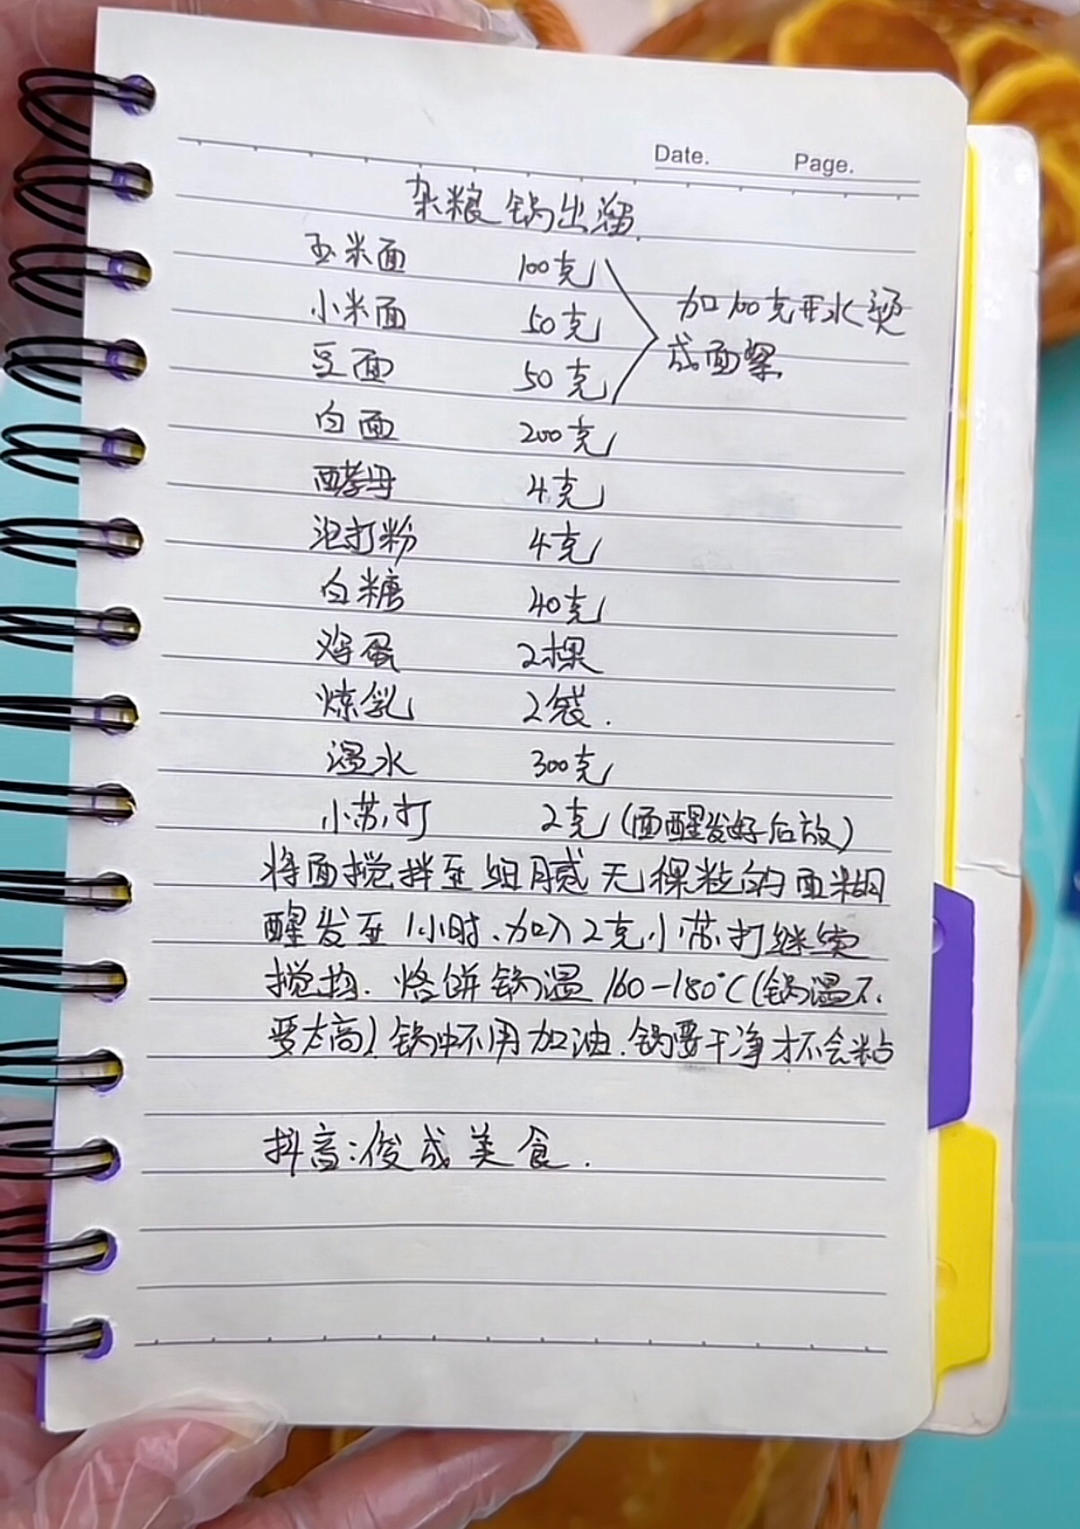 Date. Page.
杂粮锅出溜
玉米面 100克
小米面 50克
豆面 50克
加100克开水烫
成面絮
白面 200克
酵母 4克
泡打粉 4克
白糖 40克
鸡蛋 2棵
炼乳 2袋.
温水 300克
小苏打 2克(面醒发好后放)
将面搅拌至细腻无棵粒的面糊
醒发至1小时、加入2克小苏打继续
搅均. 烙饼锅温160-180℃(锅温不
要太高)锅中不用加油.锅要干净才不会粘
抖音:俊成美食.